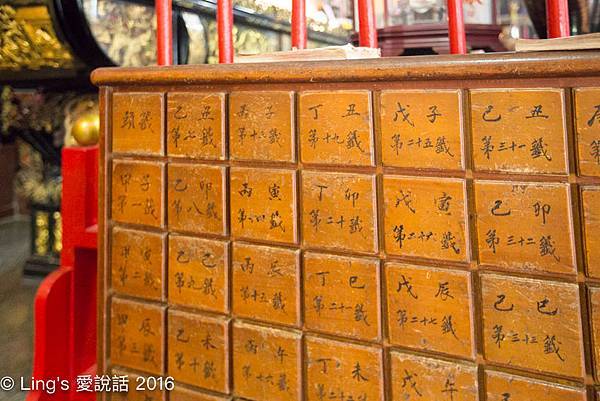 頭籤
乙丑
第七籤
丙子
第十三籤
丁丑
第十九籤
戊子
第二十五籤
己丑
第三十一籤
甲子
第一籤
乙卯
第八籤
丙寅
第十四籤
丁卯
第二十籤
戊寅
第二十六籤
己卯
第三十二籤
甲寅
第二籤
乙巳
第九籤
丙辰
第十五籤
丁巳
第二十一籤
戊辰
第二十七籤
己巳
第三十三籤
甲辰
第三籤
乙未
第十籤
丙午
第十六籤
丁未
戊午
© Ling's 愛說話 2016